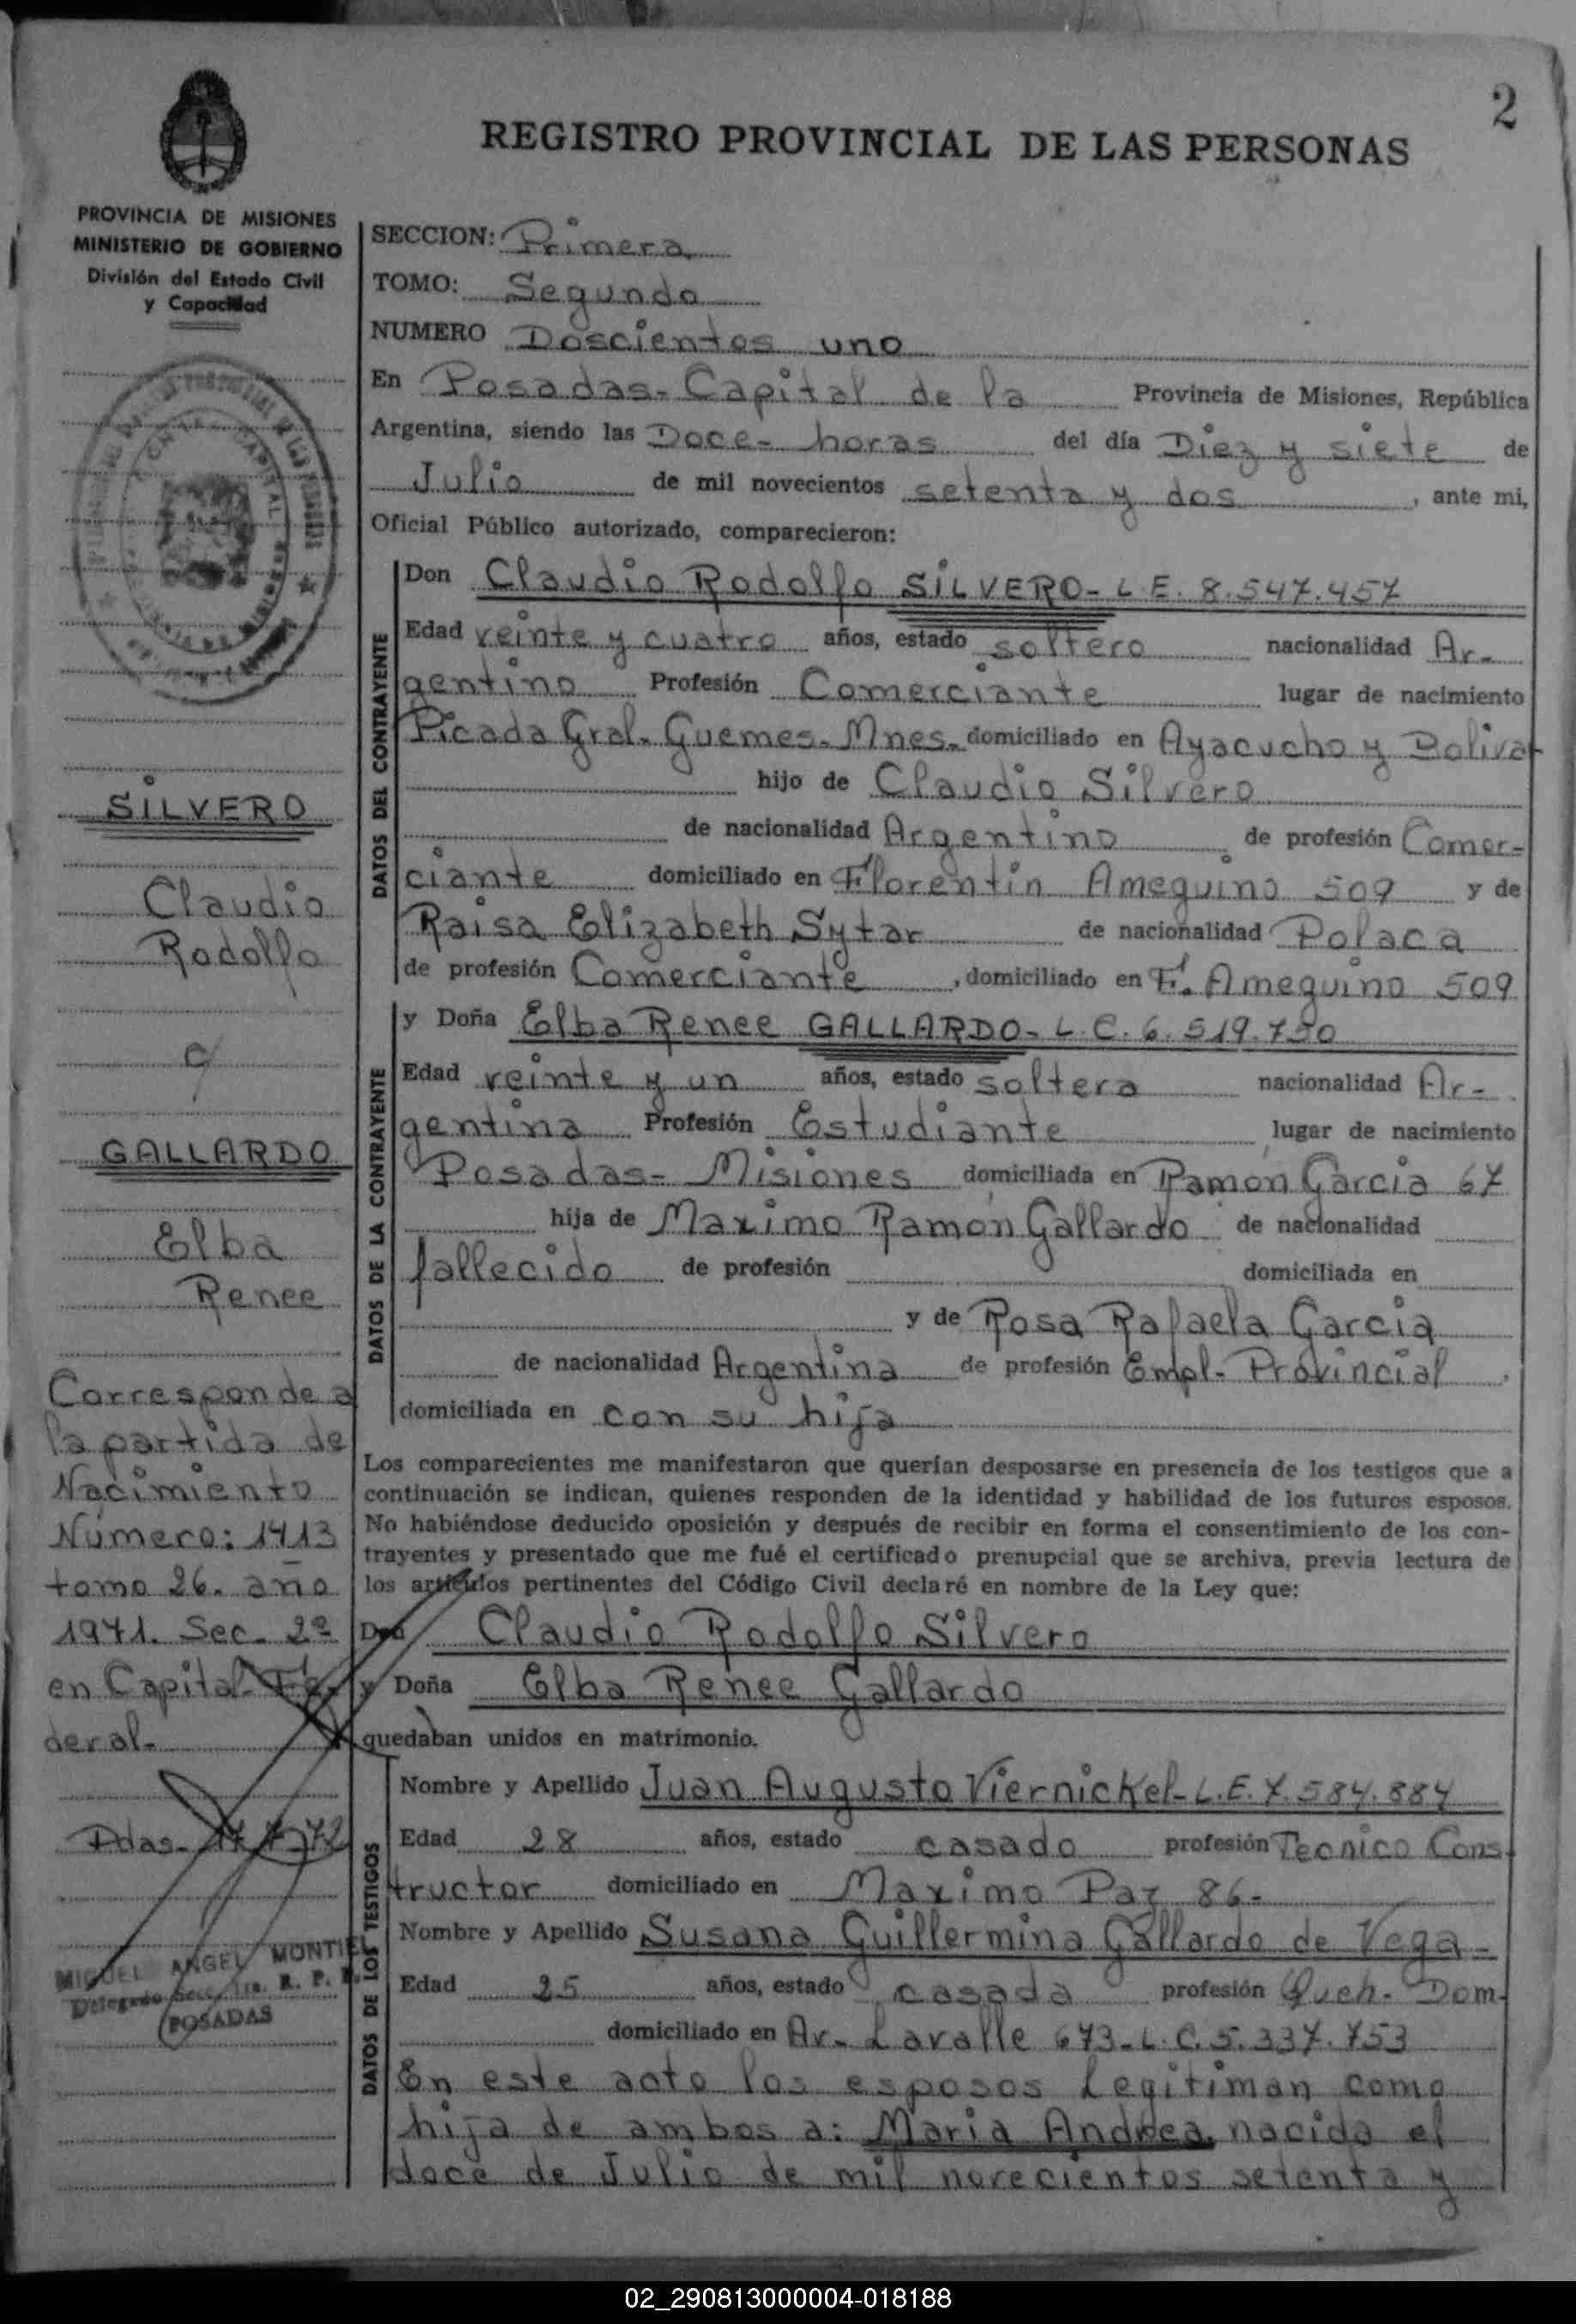 2
REGISTRO PROVINCIAL DE LAS PERSONAS
PROVINCIA DE MISIONES
MINISTERIO DE GOBIERNO
División del Estado Civil
y Capacidad
SECCION: Primera
TOMO: Segundo
NUMERO Doscientos uno
En Posadas- Capital de la Provincia de Misiones, República
Argentina, siendo las Doce- horas del día Diez y siete de
Julio de mil novecientos setenta y dos, ante mi,
Oficial Público autorizado, comparecieron:
DATOS DEL CONTRAYENTE
Don Claudio Rodolfo SILVERO- L.E. 8.547.457
Edad veinte y cuatro años, estado soltero nacionalidad Ar-
gentino Profesión Comerciante lugar de nacimiento
Picada Gral. Guemes- Mnes- domiciliado en Ayacucho y Bolivar
hijo de Claudio Silvero
de nacionalidad Argentino de profesión Comer-
ciante domiciliado en Florentin Ameguino 509 y de
Raisa Elizabeth Sytar de nacionalidad Polaca
de profesión Comerciante, domiciliado en F. Ameguino 509
DATOS DE LA CONTRAYENTE
y Doña Elba Renee GALLARDO- L.C. 6.519.750
Edad veinte y un años, estado soltera nacionalidad Ar-
gentina Profesión Estudiante lugar de nacimiento
Posadas- Misiones domiciliada en Ramón Garcia 67
hija de Maximo Ramón Gallardo de nacionalidad
fallecido de profesión domiciliada en
y de Rosa Rafaela Garcia
de nacionalidad Argentina de profesión Empl- Provincial.
domiciliada en con su hija
Los comparecientes me manifestaron que querían desposarse en presencia de los testigos que a
continuación se indican, quienes responden de la identidad y habilidad de los futuros esposos.
No habiéndose deducido oposición y después de recibir en forma el consentimiento de los con-
trayentes y presentado que me fué el certificado prenupcial que se archiva, previa lectura de
los artículos pertinentes del Código Civil declaré en nombre de la Ley que:
Don Claudio Rodolfo Silvero
y Doña Elba Renee Gallardo
quedaban unidos en matrimonio.
DATOS DE LOS TESTIGOS
Nombre y Apellido Juan Augusto Viernickel- L.E. 7.584.884
Edad 28 años, estado casado profesión Tecnico Cons-
tructor domiciliado en Maximo Paz 86-
Nombre y Apellido Susana Guillermina Gallardo de Vega-
Edad 25 años, estado casada profesión Queh. Dom.
domiciliado en Av- Lavalle 673- L.C. 5.337.753
En este acto los esposos Legitiman como
hija de ambos a: Maria Andrea, nacida el
doce de Julio de mil novecientos setenta y
SILVERO
Claudio
Rodolfo
c/
GALLARDO
Elba
Renee
Corresponde a
la partida de
Nacimiento
Número: 1413
tomo 26. año
1971. Sec. 2ª
en Capital Fe-
deral-
Pdas- 17-7-72
MIGUEL ANGEL MONTIEL
Delegado Secc. 1ra. R. P. P.
POSADAS
02_290813000004-018188